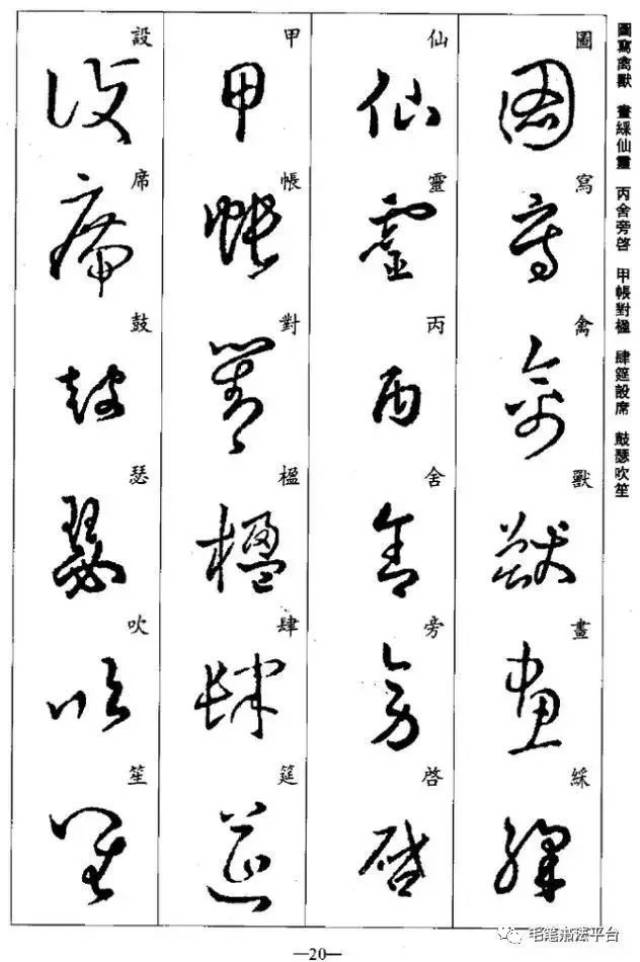 圖寫禽獸 畫綵仙靈 丙舍旁啓 甲帳對楹 肆筵設席 鼓瑟吹笙
圖寫禽獸畫綵
仙靈丙舍旁啓
甲帳對楹肆筵
設席鼓瑟吹笙
—20—
毛笔书法平台